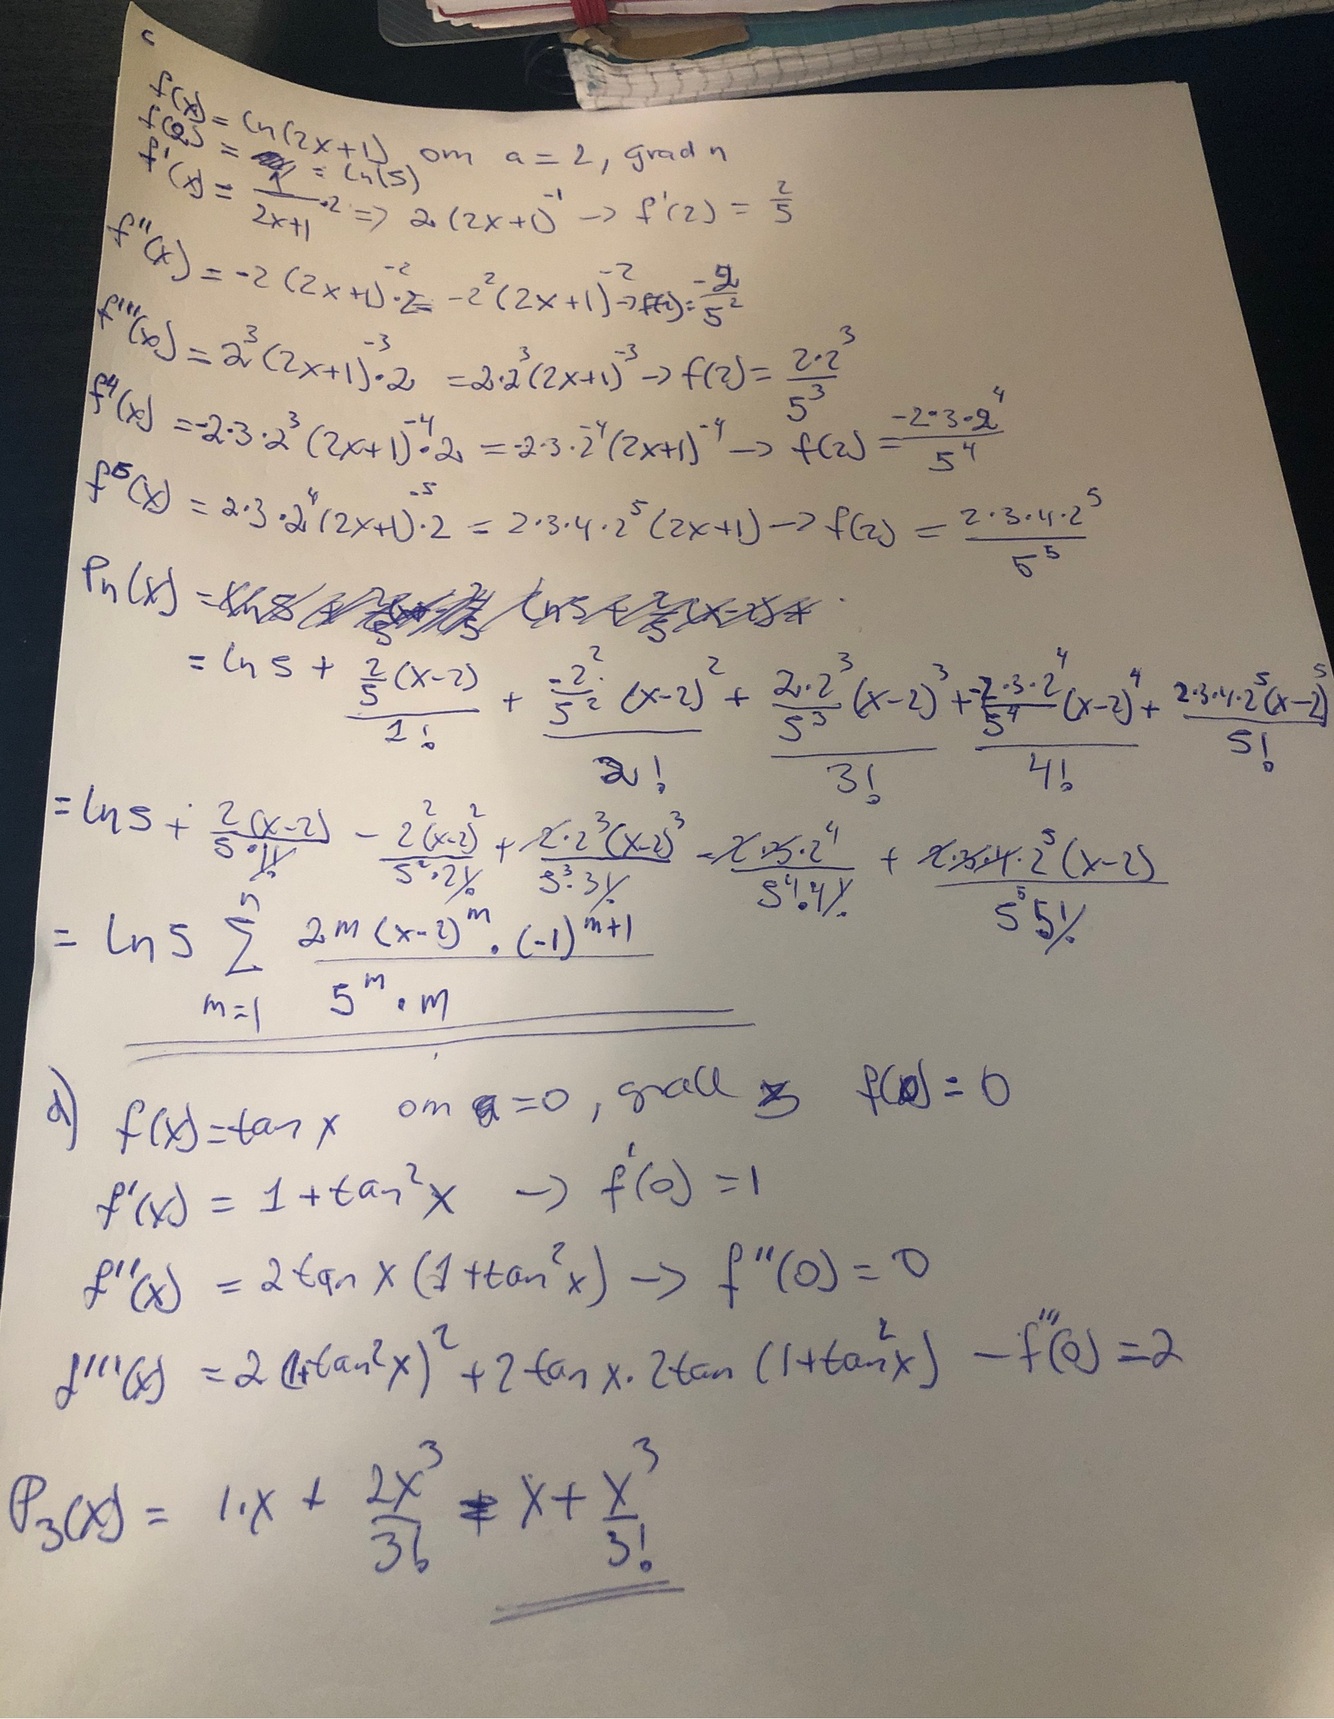 c
f(x) = ln(2x+1) om a = 2, grad n
f(2) = = ln(5)
f'(x) = 1/(2x+1) · 2 => 2(2x+1)^-1 -> f'(2) = 2/5
f''(x) = -2(2x+1)^-2 · 2 = -2^2(2x+1)^-2 -> f(2) = -2/5^2
f'''(x) = 2^3(2x+1)^-3 · 2 = 2·2^3(2x+1)^-3 -> f(2) = 2·2^3/5^3
f^4(x) = -2·3·2^3(2x+1)^-4 · 2 = -2·3·2^-4(2x+1)^-4 -> f(2) = -2·3·2^4/5^4
f^5(x) = 2·3·2^4(2x+1)^-5 · 2 = 2·3·4·2^5(2x+1) -> f(2) = 2·3·4·2^5/5^5
Pn(x) =
= ln5 + (2/5(x-2))/1! + (-2^2/5^2(x-2)^2)/2! + (2·2^3/5^3(x-2)^3)/3! + (-2·3·2^4/5^4(x-2)^4)/4! + (2·3·4·2^5(x-2)^5)/5!
= ln5 + 2(x-2)/(5·1!) - 2^2(x-2)^2/(5^2·2!) + 2·2^3(x-2)^3/(5^3·3!) - 2·3·2^4/(5^4·4!) + 2·3·4·2^5(x-2)/(5^5 5!)
= ln5 Σ_{m=1}^{n} (2^m(x-2)^m · (-1)^{m+1})/(5^m · m)
d) f(x) = tan x om a = 0, grad 3 f(0) = 0
f'(x) = 1 + tan^2 x -> f'(0) = 1
f''(x) = 2 tan x (1 + tan^2 x) -> f''(0) = 0
f'''(x) = 2(1+tan^2 x)^2 + 2 tan x · 2 tan (1 + tan^2 x) - f'''(0) = 2
P3(x) = 1·x + 2x^3/3! = x + x^3/3!